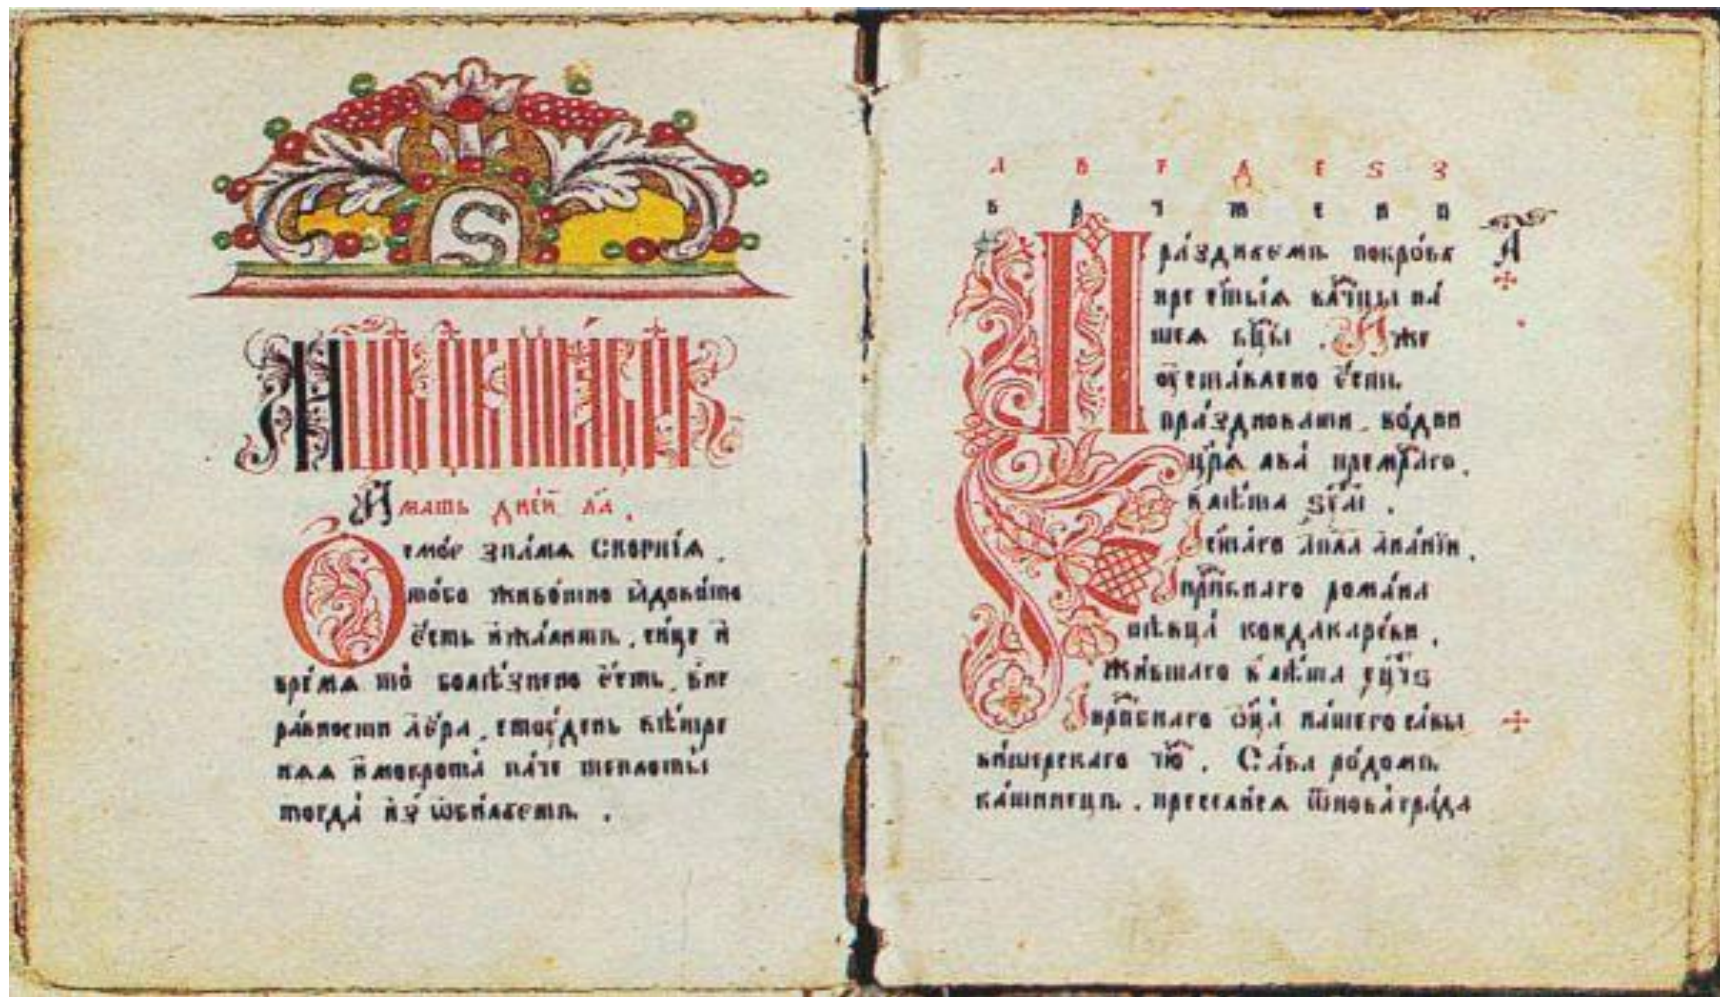 S
И҆мать дне́й л҃а .
Осмо́е зна́мѧ скорпі́ѧ .
е҆́сть и҆ жа́литъ , си́це и҆
вре́мѧ то̀ болѣ́знено є҆́сть , вне
ра́вности а҆е́ра , стоуде́нь вѣ́тре
наѧ и҆ мокрота̀ па́че теплоты̀
тогда̀ и҆з̾ ѡ҆би́лꙋетъ .
а в г д е ѕ з
в р ч м с н п
Пра́зднꙋемъ покро́въ
прест҃ы́ѧ влчⷣцы на́
шеѧ бц҃ы . И҆́же
оу҆ста́влено є҆́сть
пра́здновати . во днѝ
цр҃ѧ̀ льва̀ премрⷣаго .
в лѣ́та ѕ҃уі .
ст҃а́го а҆пⷭ҇ла а҆на́нїи .
прпⷣбнаго рома́на
пѣвца̀ кондакаре́ви .
жи́вшаго в лѣ́та
прпⷣбнаго ѻ҆ц҃а̀ на́шего са́вы
ви́шерскаго чю̀ . Са́ва ро́домъ
ка́шинецъ . пресели́сѧ ѿ но́ва гра́да
А